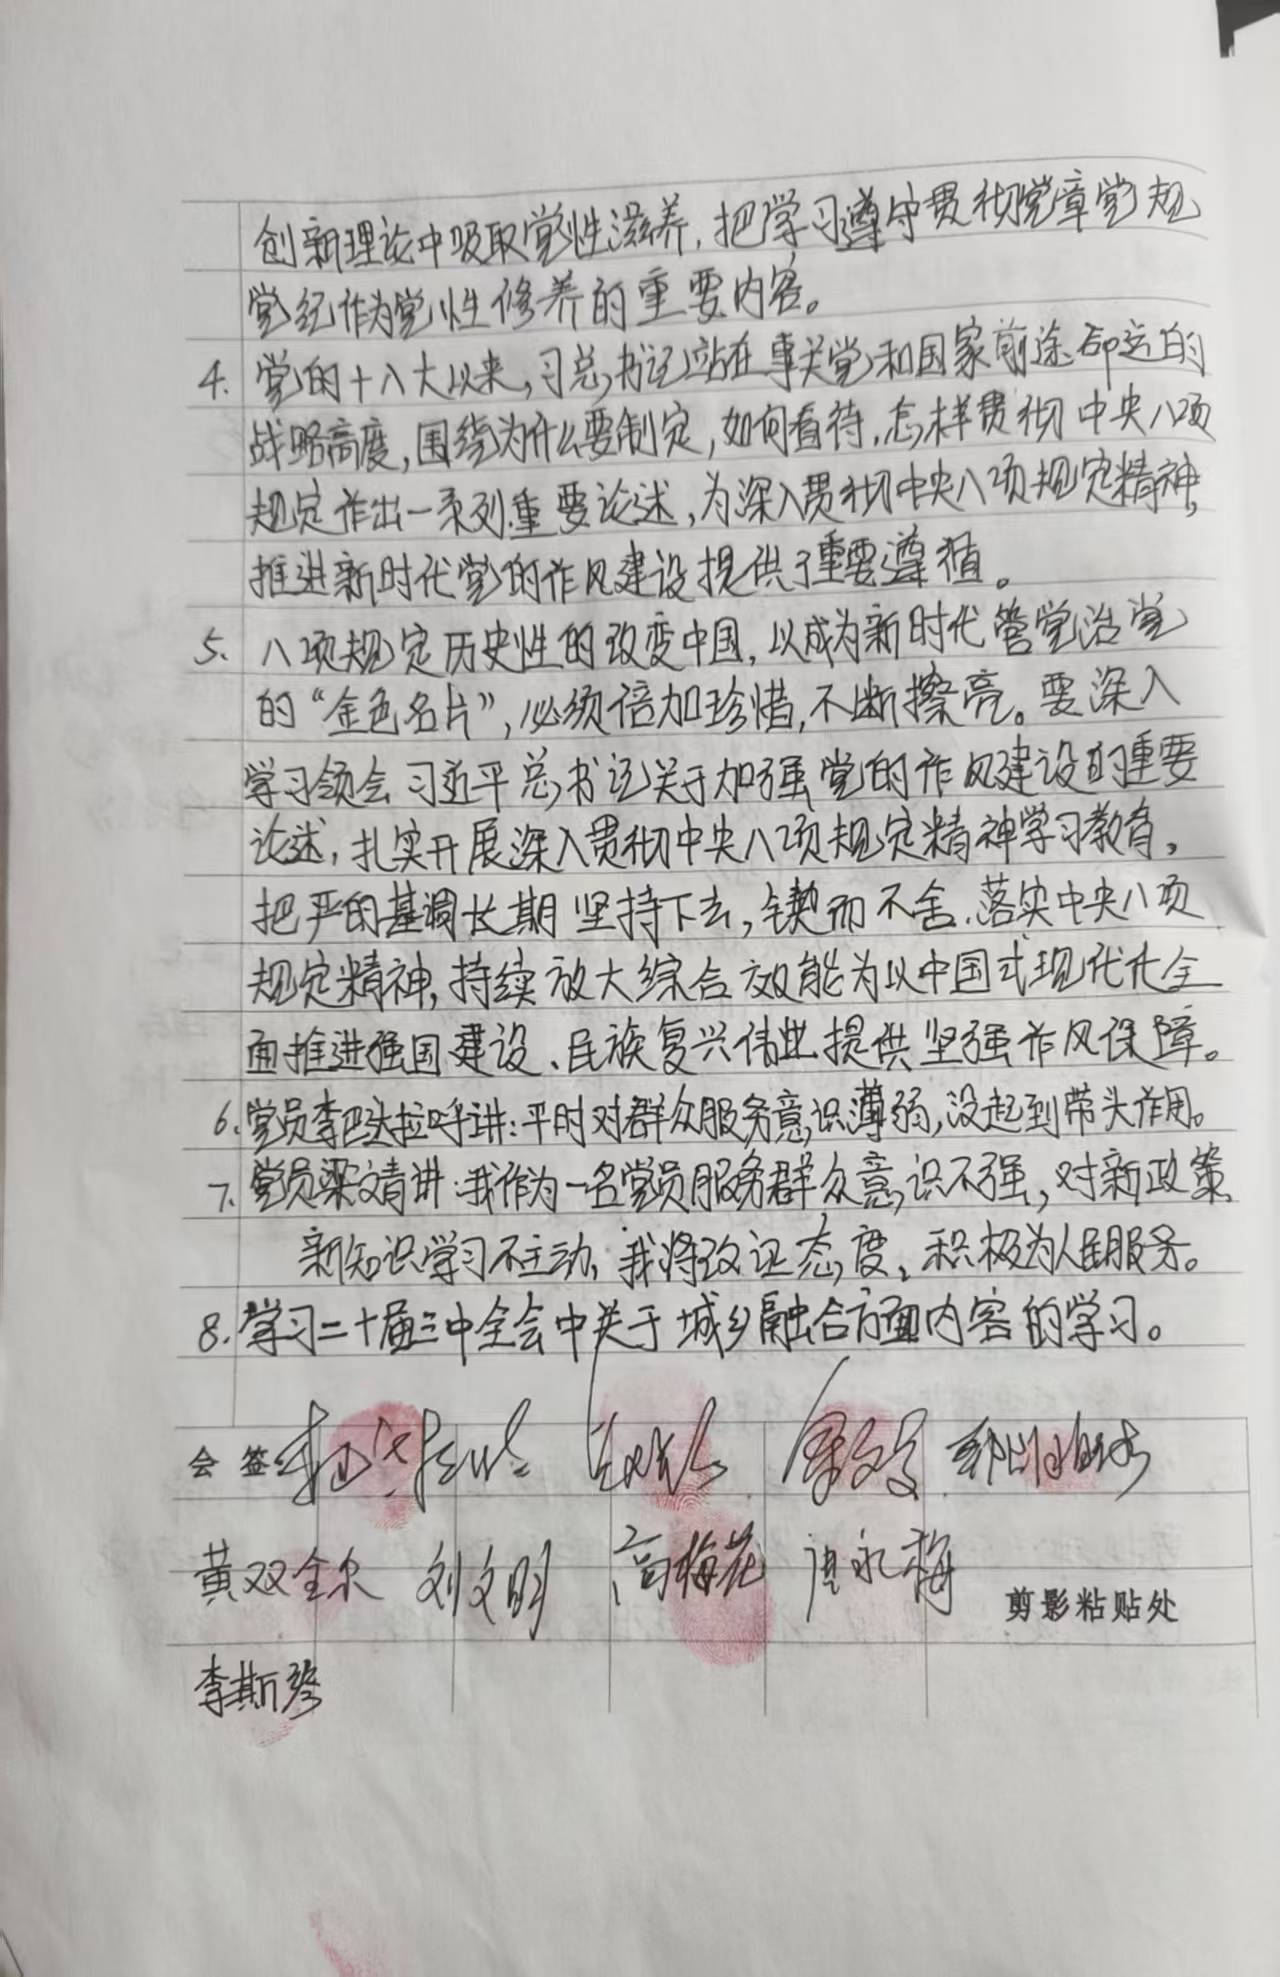 创新理论中吸取党性滋养,把学习遵守贯彻党章党规
党纪作为党性修养的重要内容。
4. 党的十八大以来,习总书记站在事关党和国家前途命运的
战略高度,围绕为什么要制定,如何看待,怎样贯彻中央八项
规定作出一系列重要论述,为深入贯彻中央八项规定精神,
推进新时代党的作风建设提供了重要遵循。
5. 八项规定历史性的改变中国,以成为新时代管党治党
的“金色名片”,必须倍加珍惜,不断擦亮。要深入
学习领会习近平总书记关于加强党的作风建设的重要
论述,扎实开展深入贯彻中央八项规定精神学习教育,
把严的基调长期坚持下去,锲而不舍、落实中央八项
规定精神,持续放大综合效能为以中国式现代化全
面推进强国建设、民族复兴伟业提供坚强作风保障。
6. 党员李巴达拉呼讲:平时对群众服务意识薄弱,没起到带头作用。
7. 党员梁文清讲:我作为一名党员服务群众意识不强,对新政策
新知识学习不主动,我将改正态度,积极为人民服务。
8. 学习二十届三中全会中关于城乡融合方面内容的学习。
会 签
黄双全尔 刘文明 高梅花 唐永梅
剪影粘贴处
李斯琴